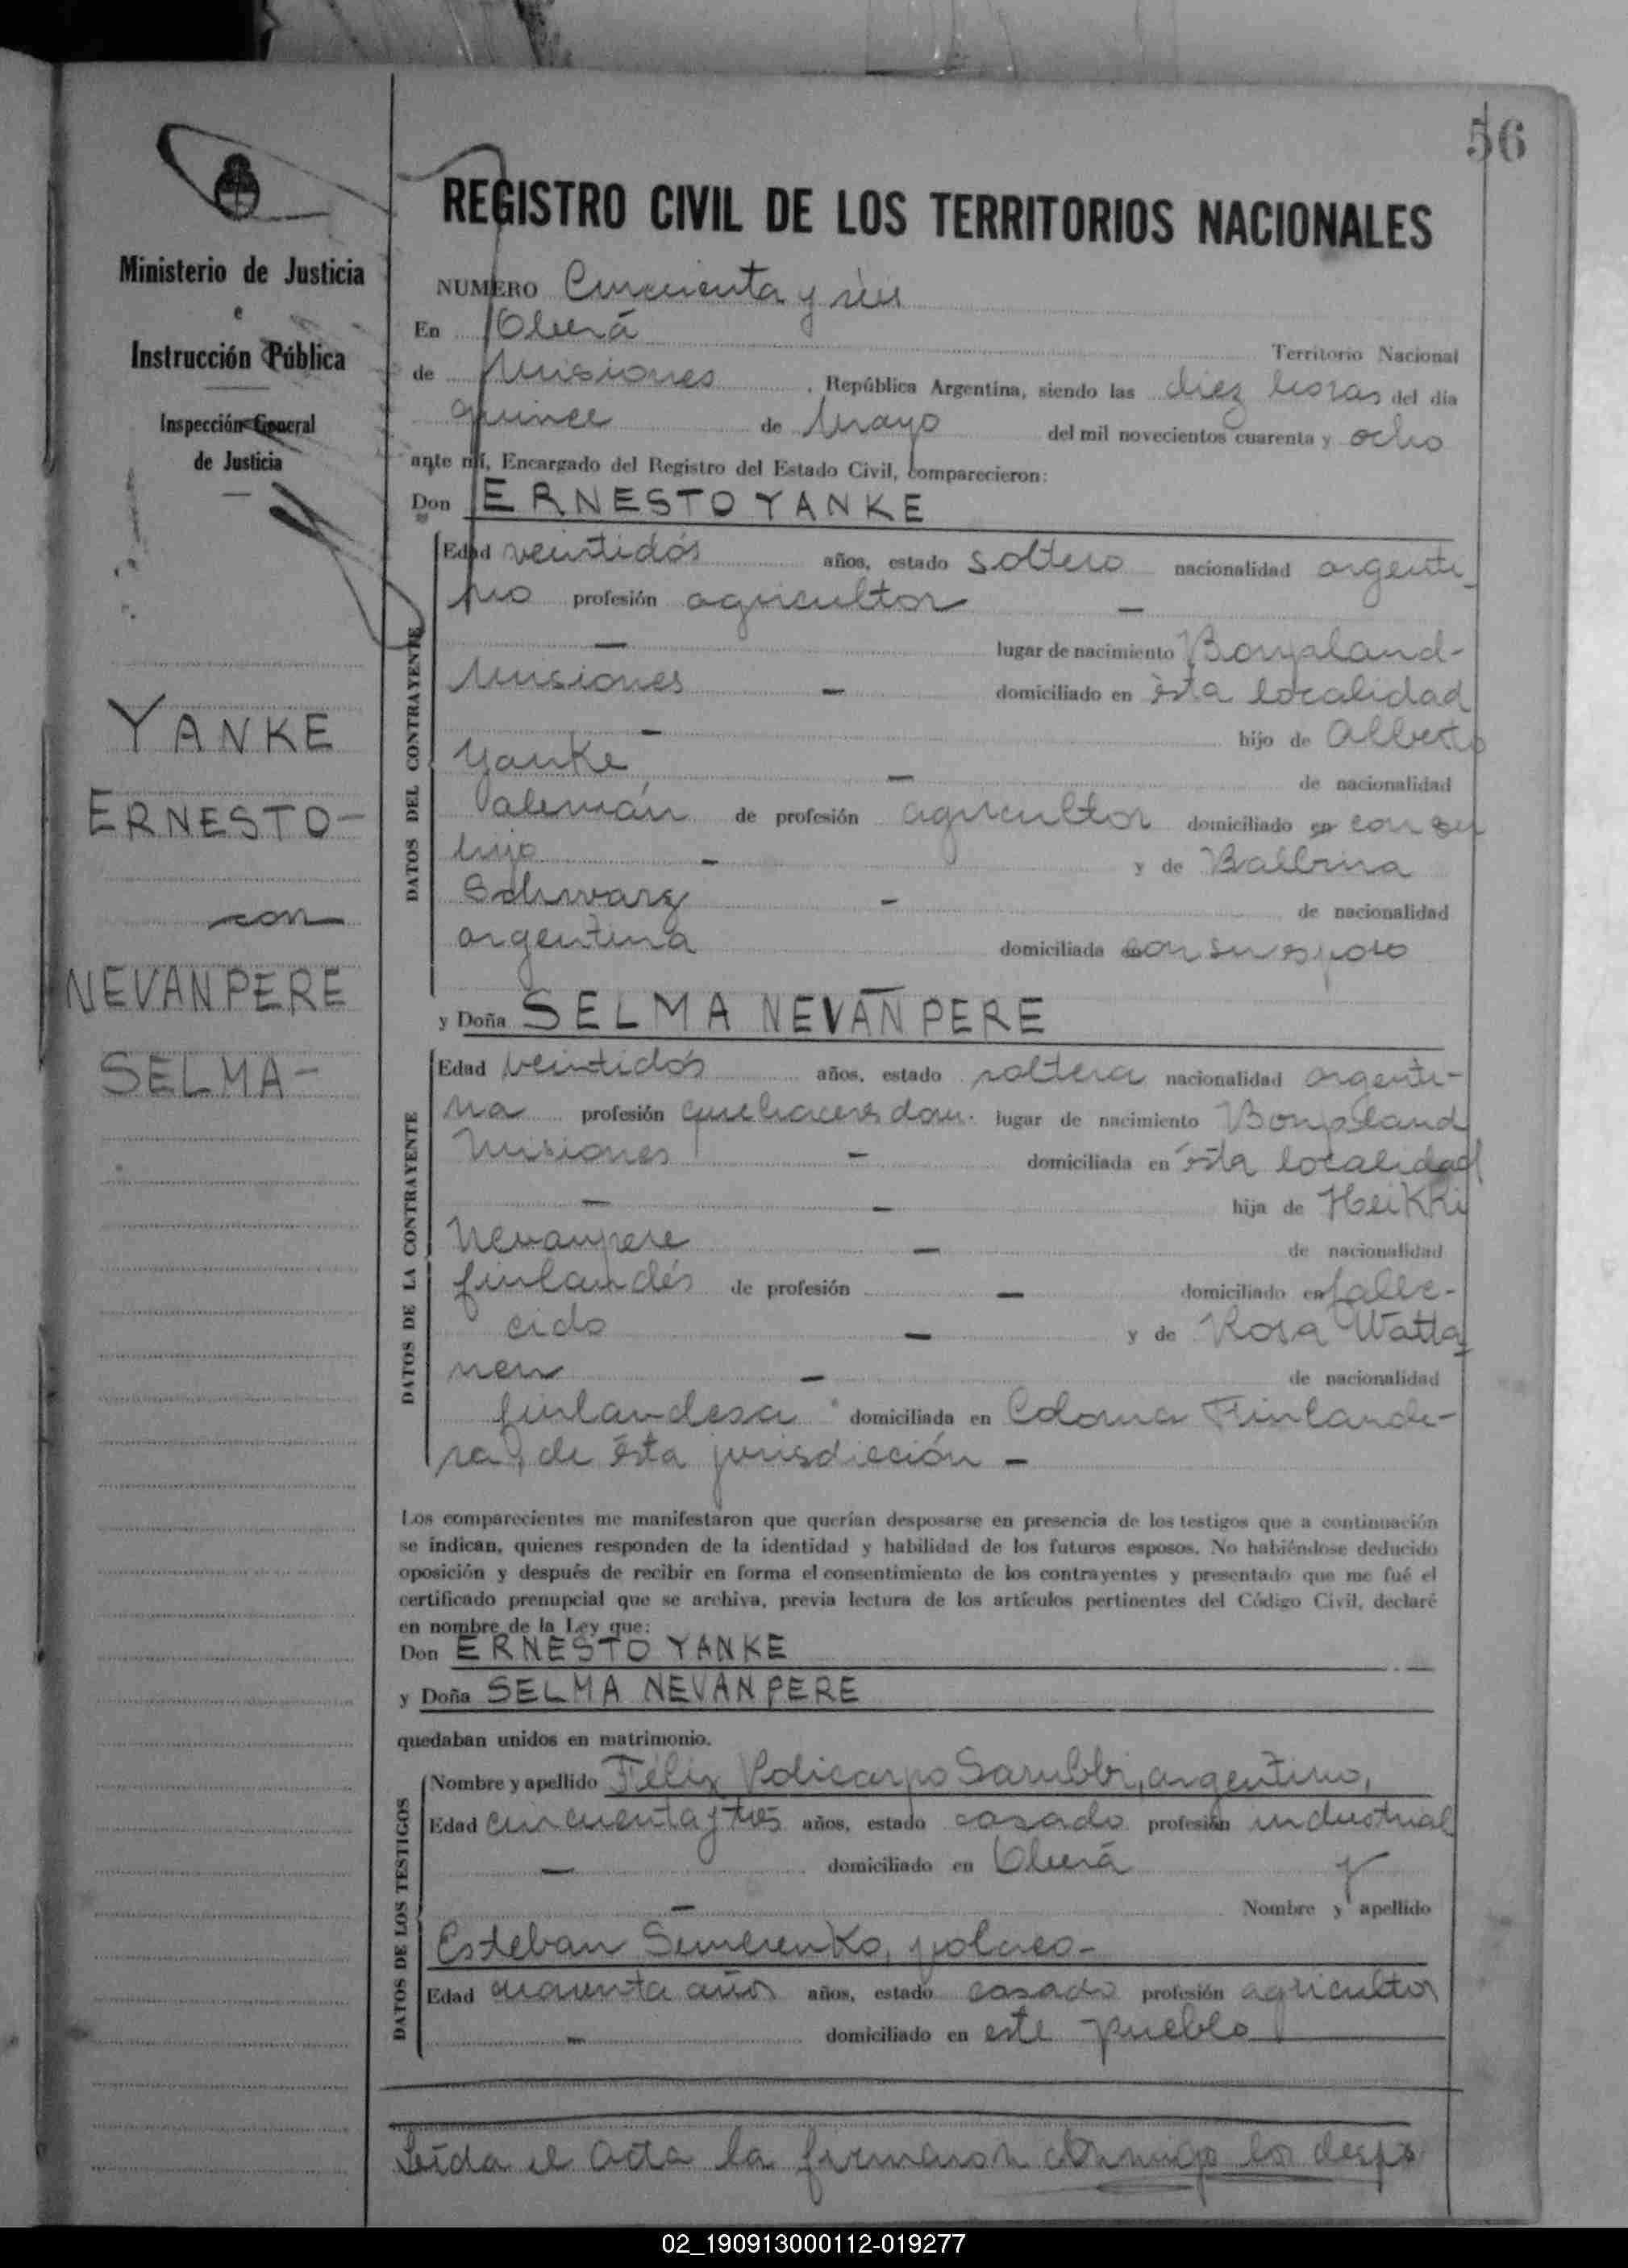 56
Ministerio de Justicia
e
Instrucción Pública
Inspección General
de Justicia
YANKE
ERNESTO-
con
NEVANPERE
SELMA-
REGISTRO CIVIL DE LOS TERRITORIOS NACIONALES
NUMERO Cincuenta y seis
En Oberá Territorio Nacional
de Misiones, República Argentina, siendo las diez horas del día
quince de Mayo del mil novecientos cuarenta y ocho
ante mí, Encargado del Registro del Estado Civil, comparecieron:
Don ERNESTO YANKE
DATOS DEL CONTRAYENTE
Edad veintidós años, estado soltero nacionalidad argenti-
no profesión agricultor —
— lugar de nacimiento Bonpland-
Misiones — domiciliado en ésta localidad
— hijo de Alberto
Yanke — de nacionalidad
alemán de profesión agricultor domiciliado en con su
hijo — y de Balbina
Schwarz — de nacionalidad
argentina domiciliada en con su esposo
y Doña SELMA NEVANPERE
DATOS DE LA CONTRAYENTE
Edad veintidós años, estado soltera nacionalidad argenti-
na profesión quehaceres dom. lugar de nacimiento Bonpland
Misiones — domiciliada en ésta localidad
— — hija de Heikki
Nevanpere — de nacionalidad
finlandés de profesión — domiciliado en falle-
cido — y de Rosa Watta
nen — de nacionalidad
finlandesa domiciliada en Colonia Finlande-
sa, de ésta jurisdicción —
Los comparecientes me manifestaron que querían desposarse en presencia de los testigos que a continuación
se indican, quienes responden de la identidad y habilidad de los futuros esposos. No habiéndose deducido
oposición y después de recibir en forma el consentimiento de los contrayentes y presentado que me fué el
certificado prenupcial que se archiva, previa lectura de los artículos pertinentes del Código Civil, declaré
en nombre de la Ley que:
Don ERNESTO YANKE
y Doña SELMA NEVANPERE
quedaban unidos en matrimonio.
DATOS DE LOS TESTIGOS
Nombre y apellido Félix Policarpo Sarubbi, argentino,
Edad cincuenta y tres años, estado casado profesión industrial
— domiciliado en Oberá y
— Nombre y apellido
Esteban Semerenko, polaco-
Edad cuarenta años años, estado casado profesión agricultor
— domiciliado en este pueblo
Leída el acta la firmaron conmigo los
02_190913000112-019277